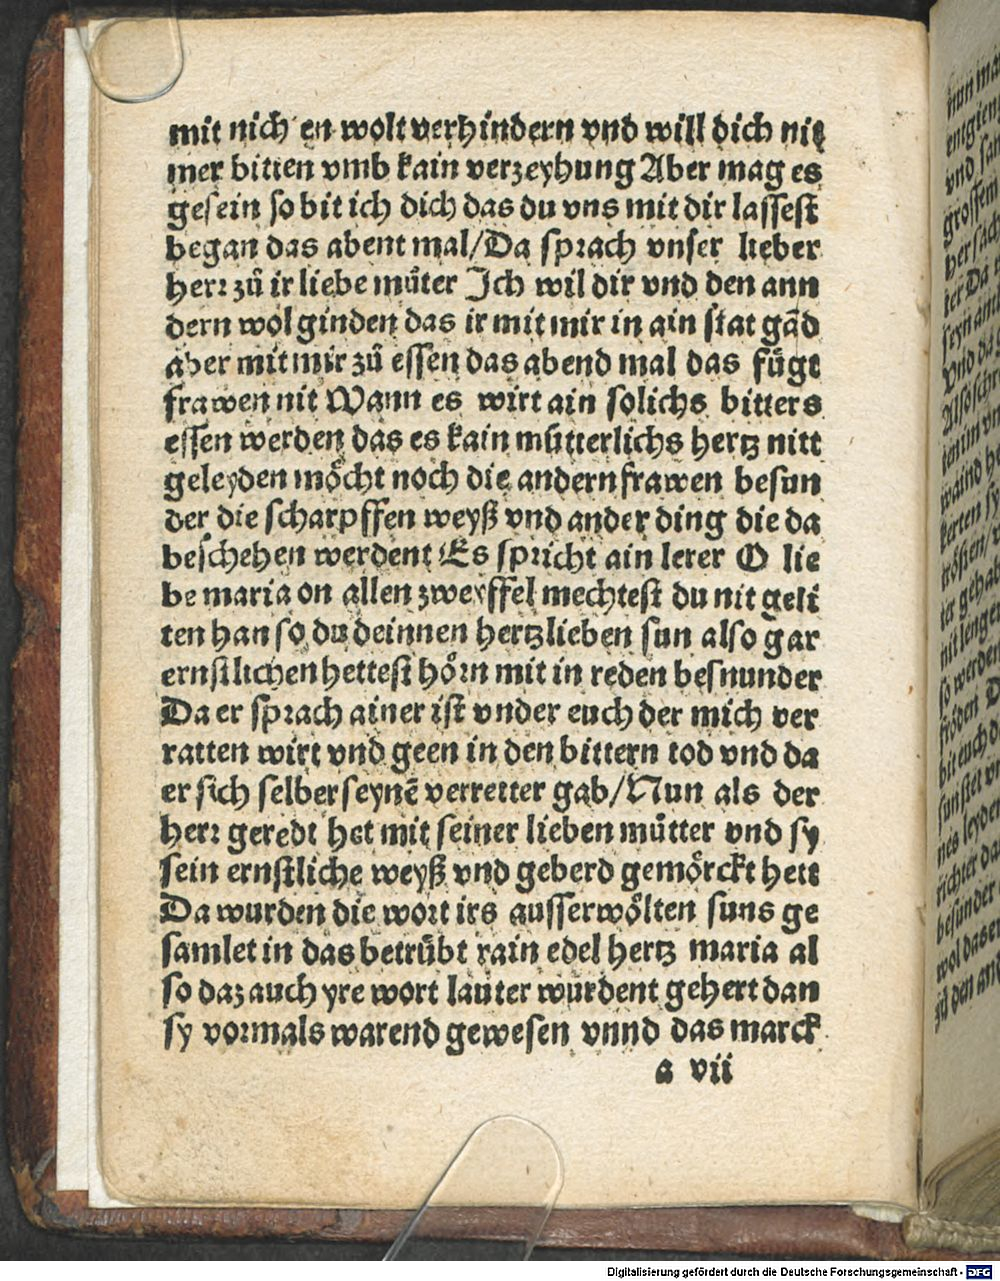 mit nich en wolt verhindern vnd will dich nit
mer bitten vmb kain verzeyhung Aber mag es
gesein so bit ich dich das du vns mit dir lassest
began das abent mal/Da sprach vnser lieber
herr zů ir liebe můter Ich wil dir vnd den ann
dern wol ginden das ir mit mir in ain stat gād
aber mit mir zů essen das abend mal das fügt
frawen nit Wann es wirt ain solichs bitters
essen werden das es kain mütterlichs hertz nitt
geleyden möcht noch die andern frawen besun
der die scharpffen weyß vnd ander ding die da
beschehen werdent Es spricht ain lerer O lie
be maria on allen zweyffel mechtest du nit geli
ten han so du deinnen hertzlieben sun also gar
ernstlichen hettest hörn mit in reden besnunder
Da er sprach ainer ist vnder euch der mich ver
ratten wirt vnd geen in den bittern tod vnd da
er sich selber seynē verretter gab/Nun als der
herr geredt het mit seiner lieben můtter vnd sy
sein ernstliche weyß vnd geberd gemörckt hett
Da wurden die wort irs ausserwölten suns ge
samlet in das betrübt rain edel hertz maria al
so daz auch yre wort lauter wurdent gehert dan
sy vormals warend gewesen vnnd das marck
a vii
nun
entgien
vnd
grossem
her sach
ter Da
seyn
Vnd da
waind
kerten sy
ter
nit lenger
so werden
fröden
bit euch
nes leyden
richter da
besunder
wol daser
zů den and
Digitalisierung gefördert durch die Deutsche Forschungsgemeinschaft - DFG